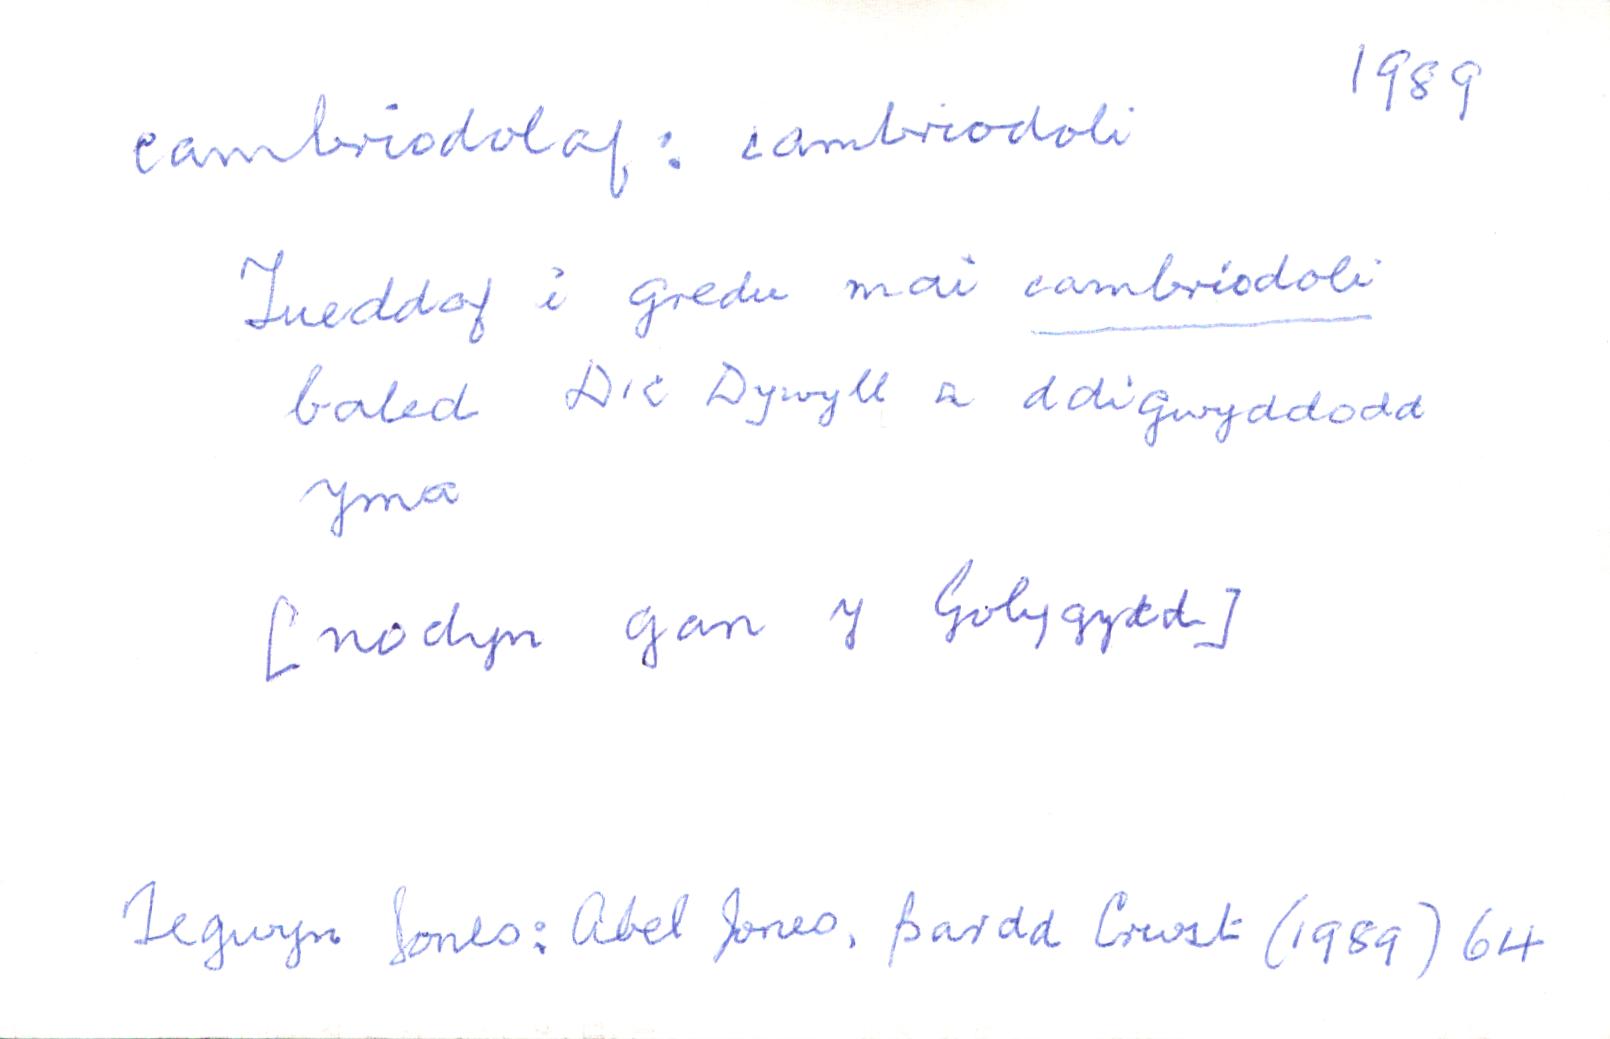 1989
cambriodolaf: cambriodoli
Tueddaf i gredu mai cambriodoli
baled Dic Dywyll a ddigwyddodd
yma
[nodyn gan y Golygydd]
Tegwyn Jones: Abel Jones, Bardd Crwst (1989) 64